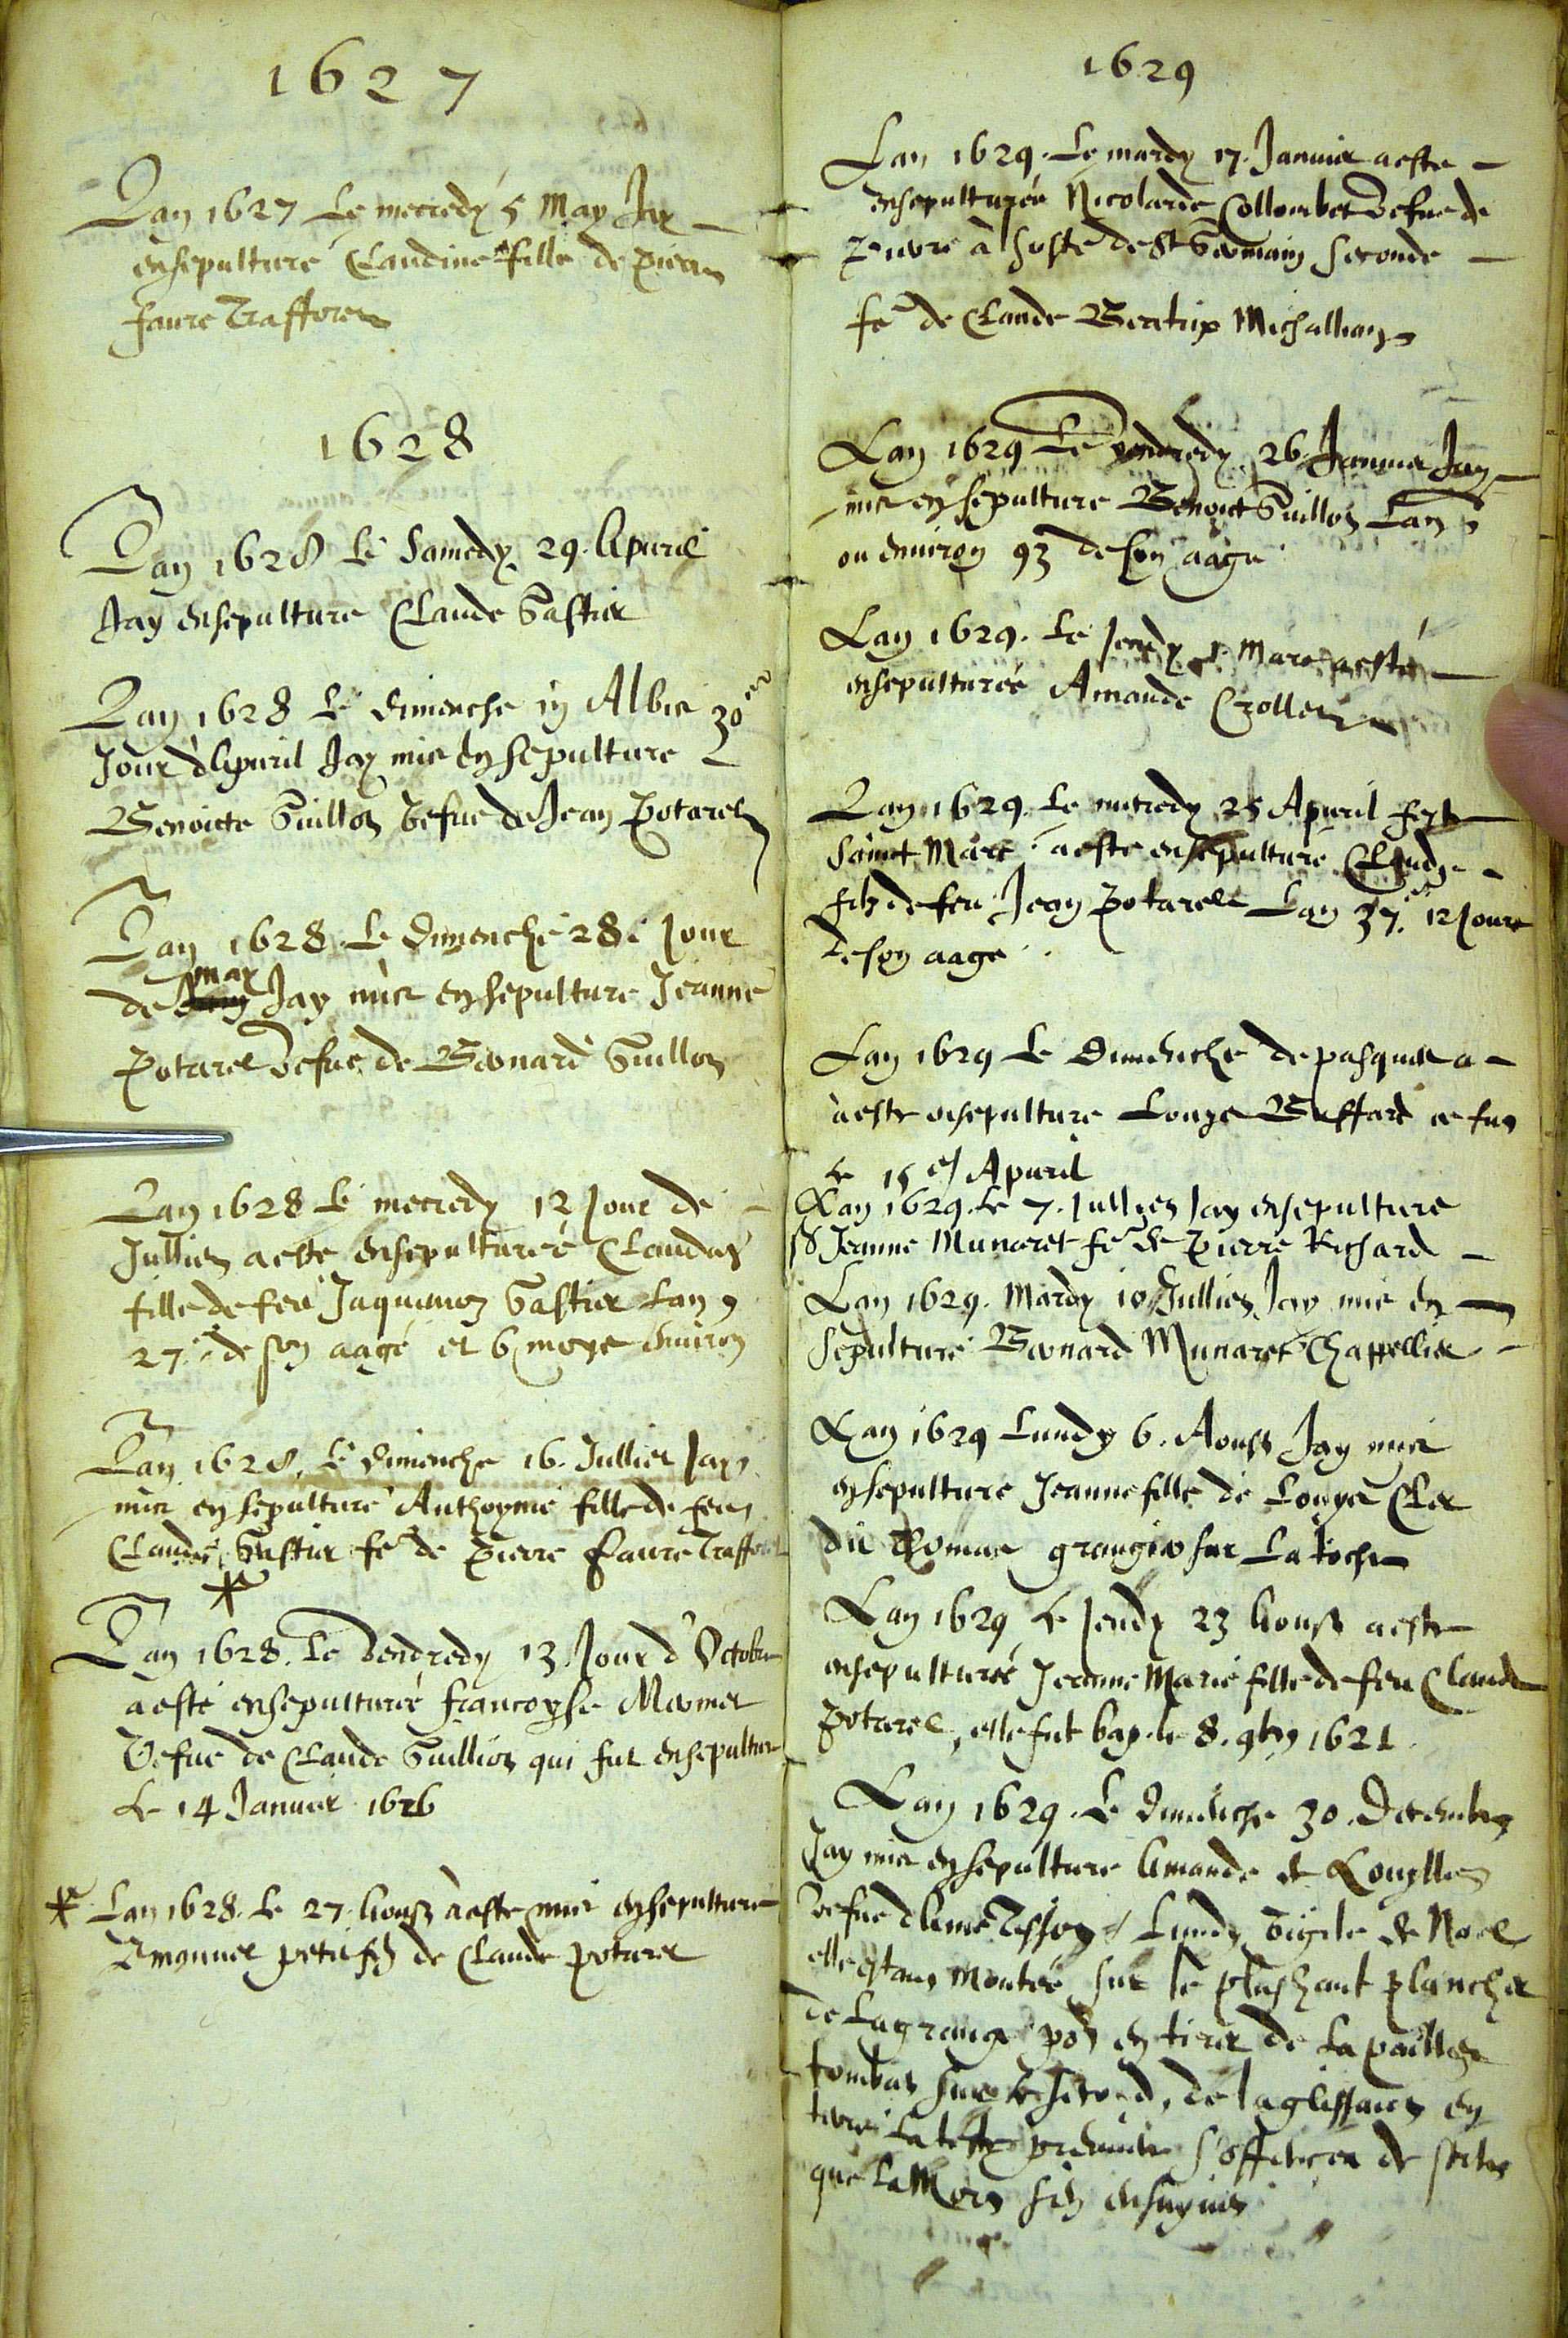 1627
Lan 1627 Le mecredy 5 May Jay
ensepulturé Claudine fille de Pierre
faure Trafforel
1628
Lan 1628 Le Samedy 29. Apuril
Jay ensepulture Claude Gastier
Lan 1628 le dimenche in Albis 30
Jour d'Apuril Jay mis en sepulture
Benoicte Guillon Vefue de Jean Potarel
Lan 1628. Le Dimenche 28e Jour
de may Jay mis en sepulture Jeanne
Potarel vefue de Bernard Guillon
Lan 1628 Le mecredy 12 Jour de
Jullies a este ensepulturée Claudaz
fille de feu Jaquemoz Gastier Lan
27e de son aage et 6 moys enuiron
Lan 1628. Le dimenche 16. Jullies Jay
mis en sepulture Anthoyme fille de feu
Claude Gastier fe de Pierre Faure Trafforel
*
Lan 1628. Le Vendredy 13. Jour d'Octobre
a esté ensepulturée francoyse Mermet
Vefue de Claude Guillion qui fut ensepulture
Le 14 Januier 1626
* Lan 1628. Le 27. Aoust a este mis en sepulture
Emonnet petit fz de Claude Potarel
1629
Lan 1629. Le mardy 17. Januier a este
ensepulturée Nicolarde Collombet vefue de
Pierre à hoste de St Germain seconde
fe de Claude Beretrix Michallion
Lan 1629 Le vendredy 26. Januier Jay
mis en sepulture Benoict Guillon Lan
ou enuiron 93 de son aage
Lan 1629. Le Jeudy 1 Mars a esté
ensepulturée Amande Crollet
Lan 1629. Le mecredy 25 Apuril feste
Sainct Marc a este ensepulturé Claude
filz de feu Jean Potarel Lan 37e 12 Jours
de son aage
Lan 1629 Le Dimenche de pasques a
a este ensepulture Louyse Buffard ce fut
le 15e Apuril
Lan 1629. Le 7. Jullies Jay ensepulture
Jeanne Munaret fe de Pierre Richard
Lan 1629. Mardy 10 Jullies Jay mis en
sepulture Bernard Munaret Chappellier
Lan 1629 Lundy 6. Aoust Jay mis
en sepulture Jeanne fille de Louys Cler
dit Romas grangier sur La Roche
Lan 1629 Le Jeudy 23 Aoust a este
ensepulturée Jeanne Marie fille de feu Claude
Potarel, elle fut bap. le 8. 9bre 1621.
Lan 1629. Le dimenche 30. Decembre
Jay mis en sepulture Amande de Louylles
vefue d'Ame Tisson / Lundy Vigile de Noel
elle estans montée sur le plus haut plancher
de La grange por en tirer de La paille
tombat sur le second, de la glissant en
terre La teste premiere s'offença de sorte
que La Mors s'en ensuyuit